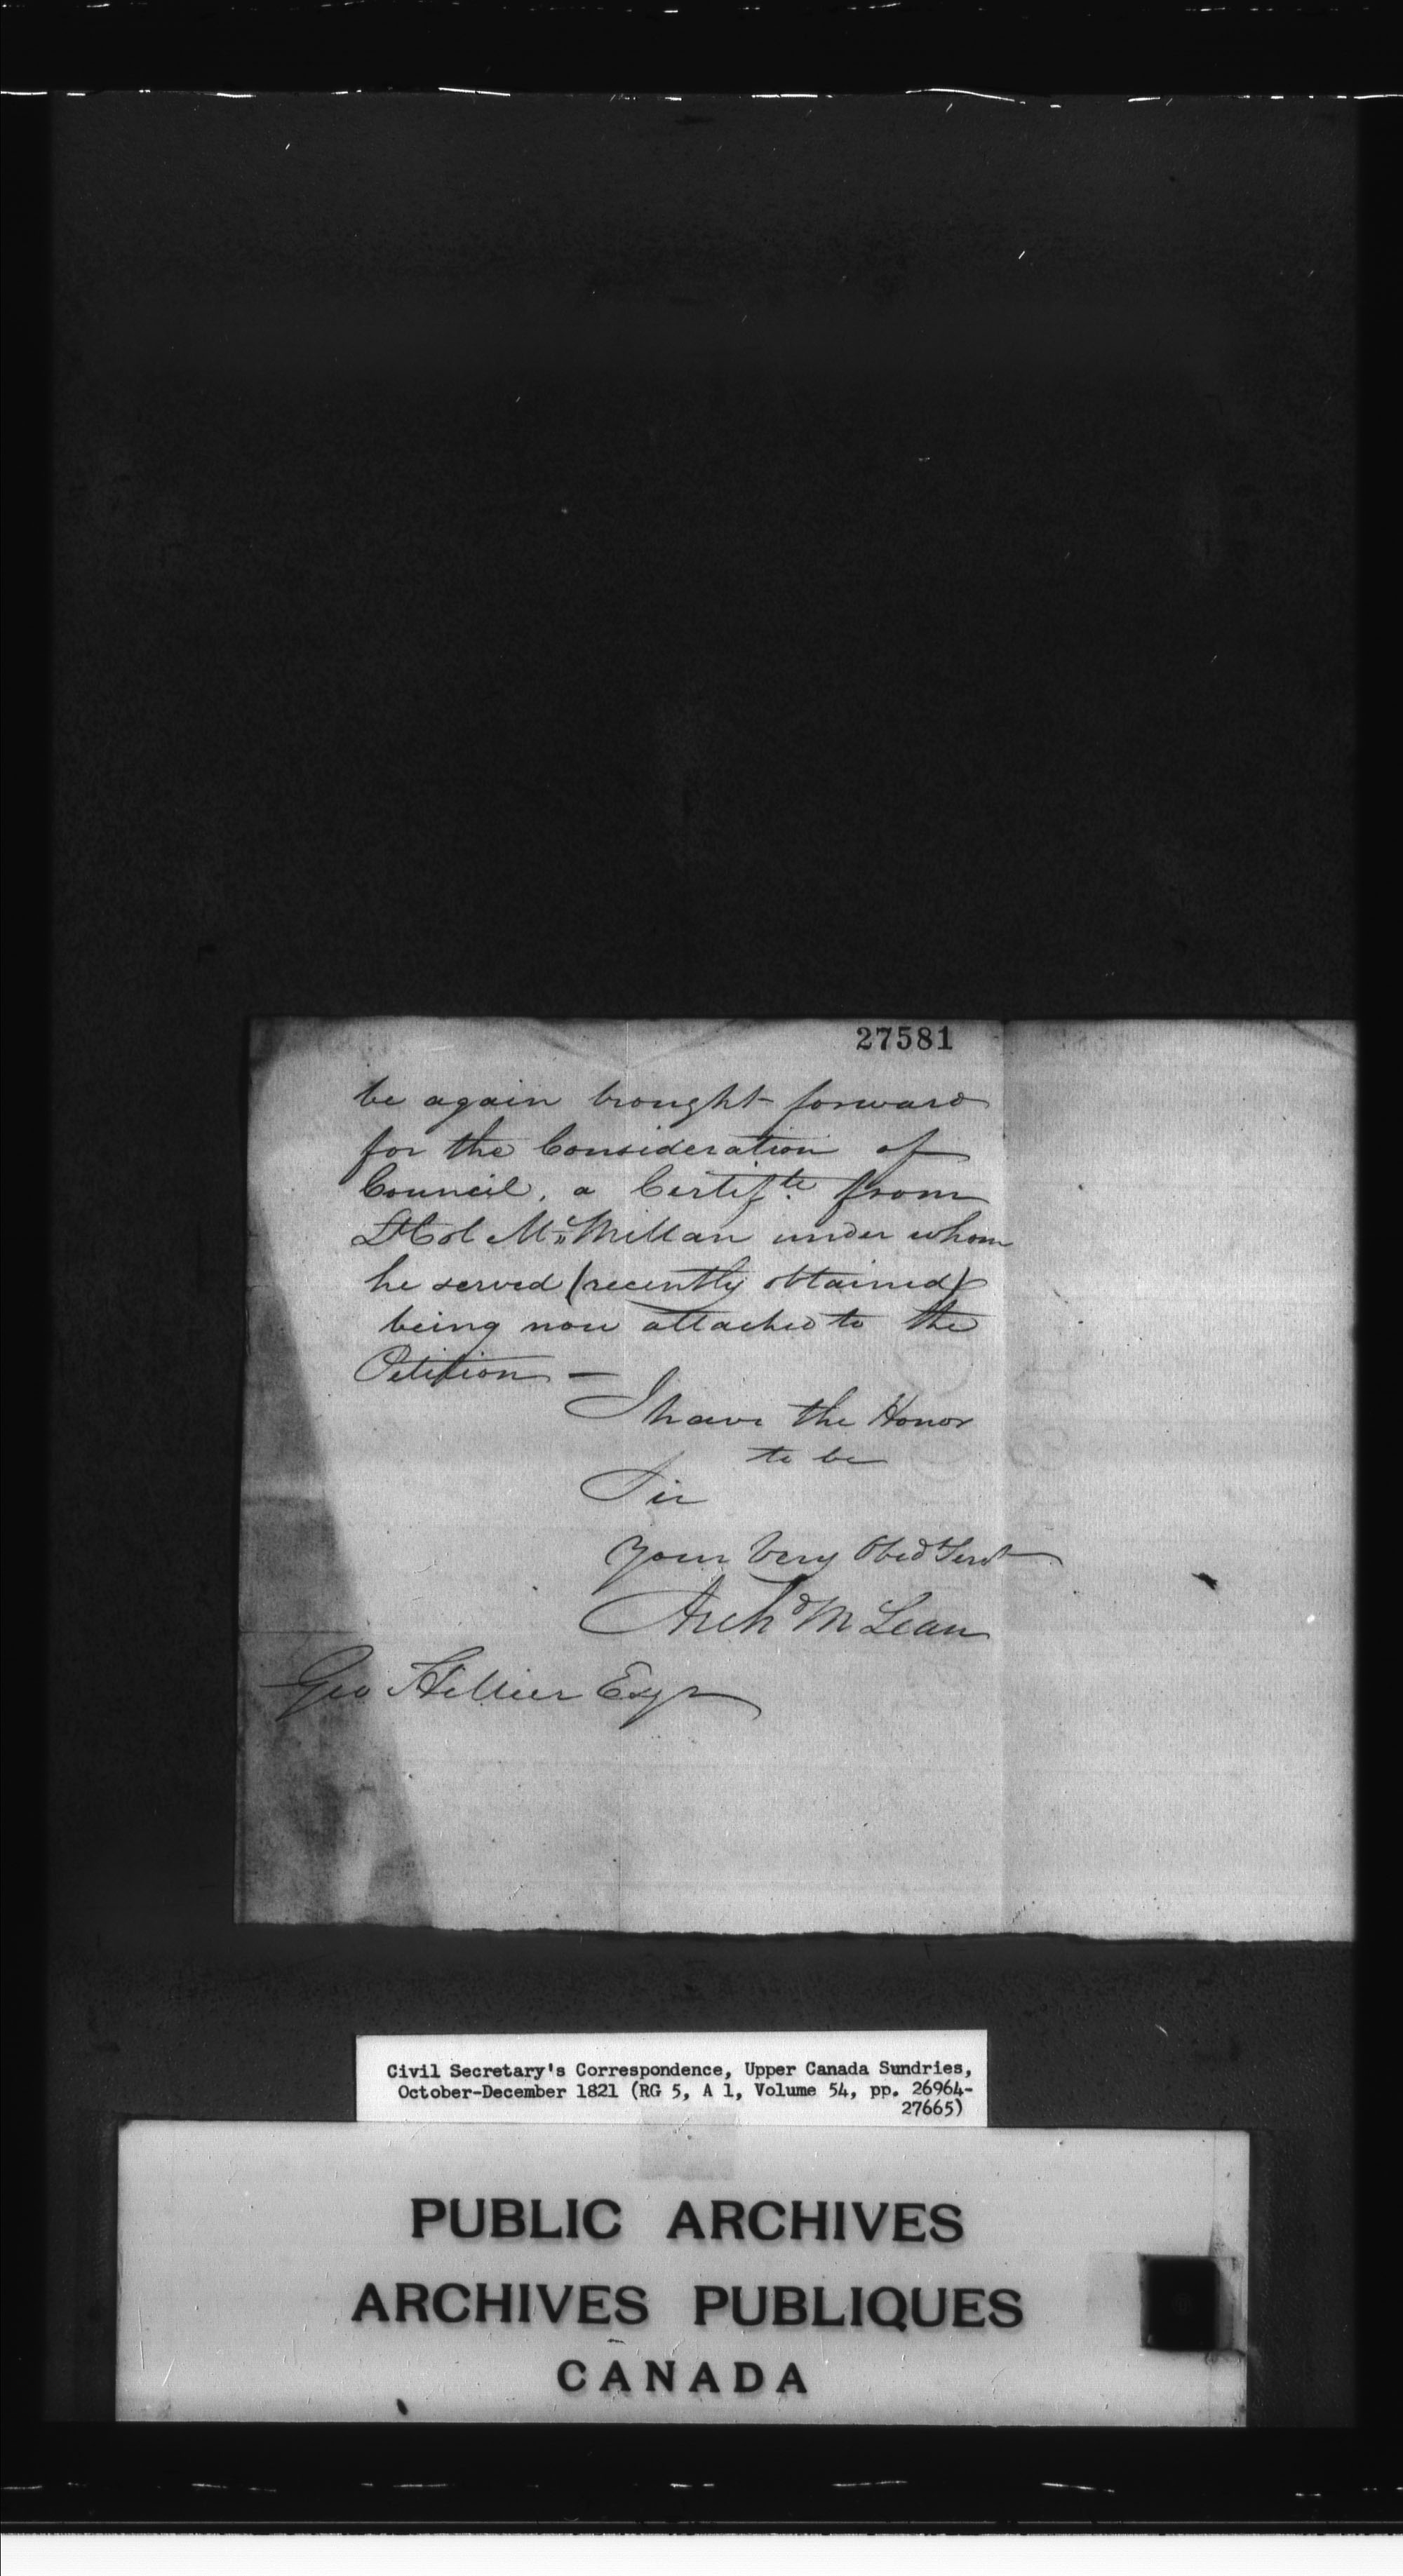 27581
be again brought forward
for the Consideration of
Council, a Certifte from
Lt Col McMillan under whom
he served (recently obtained)
being now attached to the
Petition —
I have the Honor
to be
Sir
Your Very Obed Servt
Archd McLean
Geo Hillier Esqr
Civil Secretary's Correspondence, Upper Canada Sundries,
October-December 1821 (RG 5, A 1, Volume 54, pp. 26964-
27665)
PUBLIC ARCHIVES
ARCHIVES PUBLIQUES
CANADA